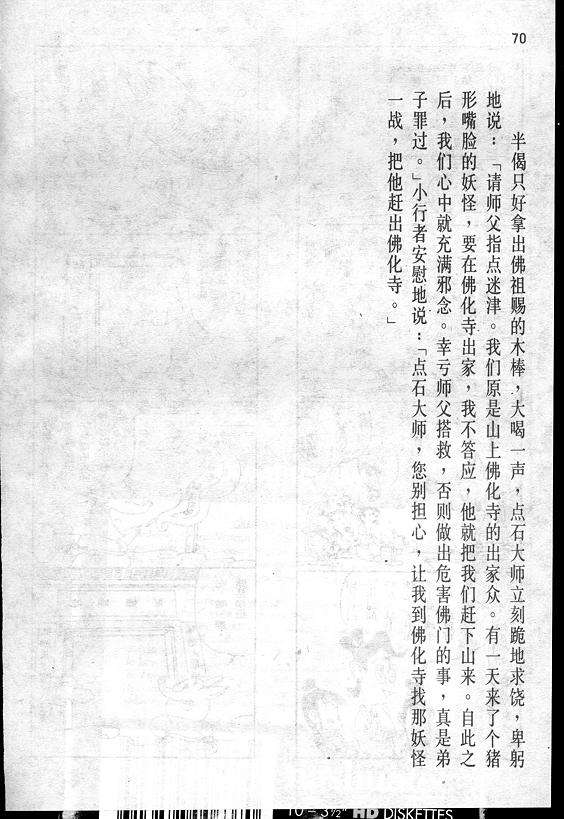 70
半偈只好拿出佛祖赐的木棒，大喝一声，点石大师立刻跪地求饶，卑躬
地说：「请师父指点迷津。我们原是山上佛化寺的出家众。有一天来了个猪
形嘴脸的妖怪，要在佛化寺出家，我不答应，他就把我们赶下山来。自此之
后，我们心中就充满邪念。幸亏师父搭救，否则做出危害佛门的事，真是弟
子罪过。」小行者安慰地说：「点石大师，您别担心，让我到佛化寺找那妖怪
一战，把他赶出佛化寺。」
10 – 3½" HD DISKETTES